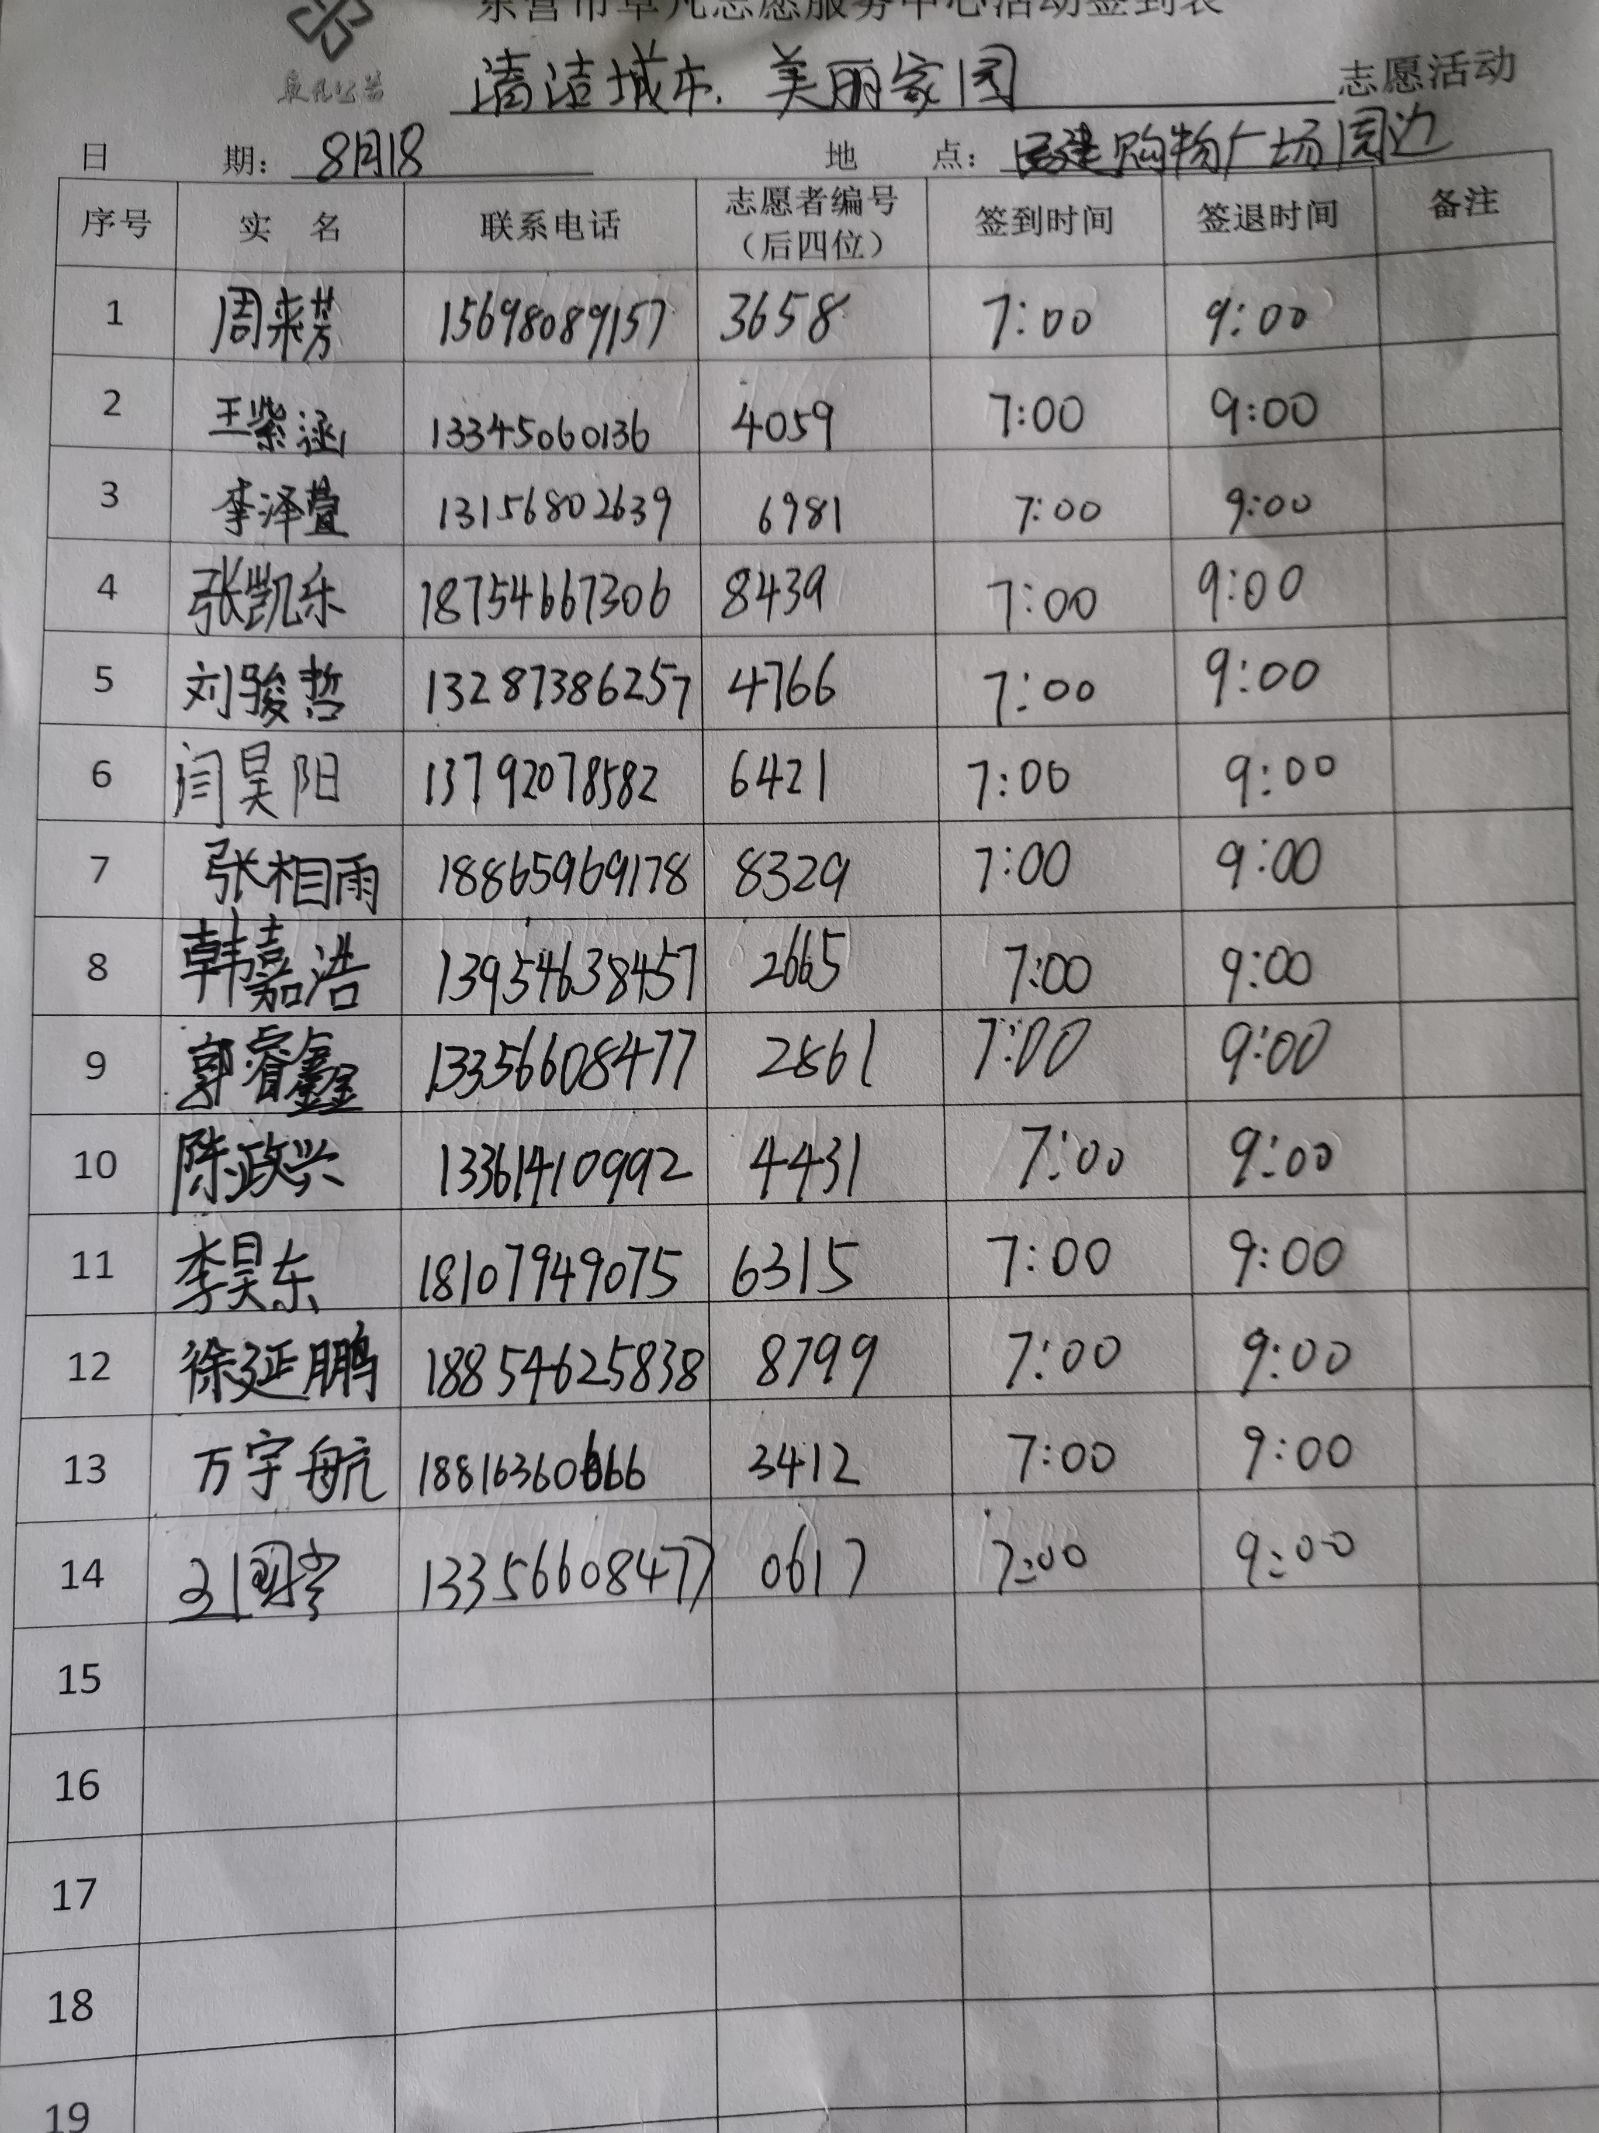 东营市卓凡志愿服务中心活动签到表
卓凡公益
清洁城市、美丽家园 志愿活动
日 期: 8月18 地 点: 购物广场周边
序号 实 名 联系电话 志愿者编号(后四位) 签到时间 签退时间 备注
1 周来芳 15698089157 3658 7:00 9:00
2 王紫涵 13345060136 4059 7:00 9:00
3 李泽萱 13156802639 6981 7:00 9:00
4 张凯乐 18754667306 8439 7:00 9:00
5 刘骏哲 13287386257 4766 7:00 9:00
6 闫昊阳 13792078582 6421 7:00 9:00
7 张相雨 18865969178 8329 7:00 9:00
8 韩嘉浩 13954638457 2665 7:00 9:00
9 郭睿鑫 13356608477 2861 7:00 9:00
10 陈政兴 13361410992 4431 7:00 9:00
11 李昊东 18107949075 6315 7:00 9:00
12 徐延鹏 18854625838 8799 7:00 9:00
13 万宇航 18816360666 3412 7:00 9:00
14 13356608477 0617 7:00 9:00
15
16
17
18
19